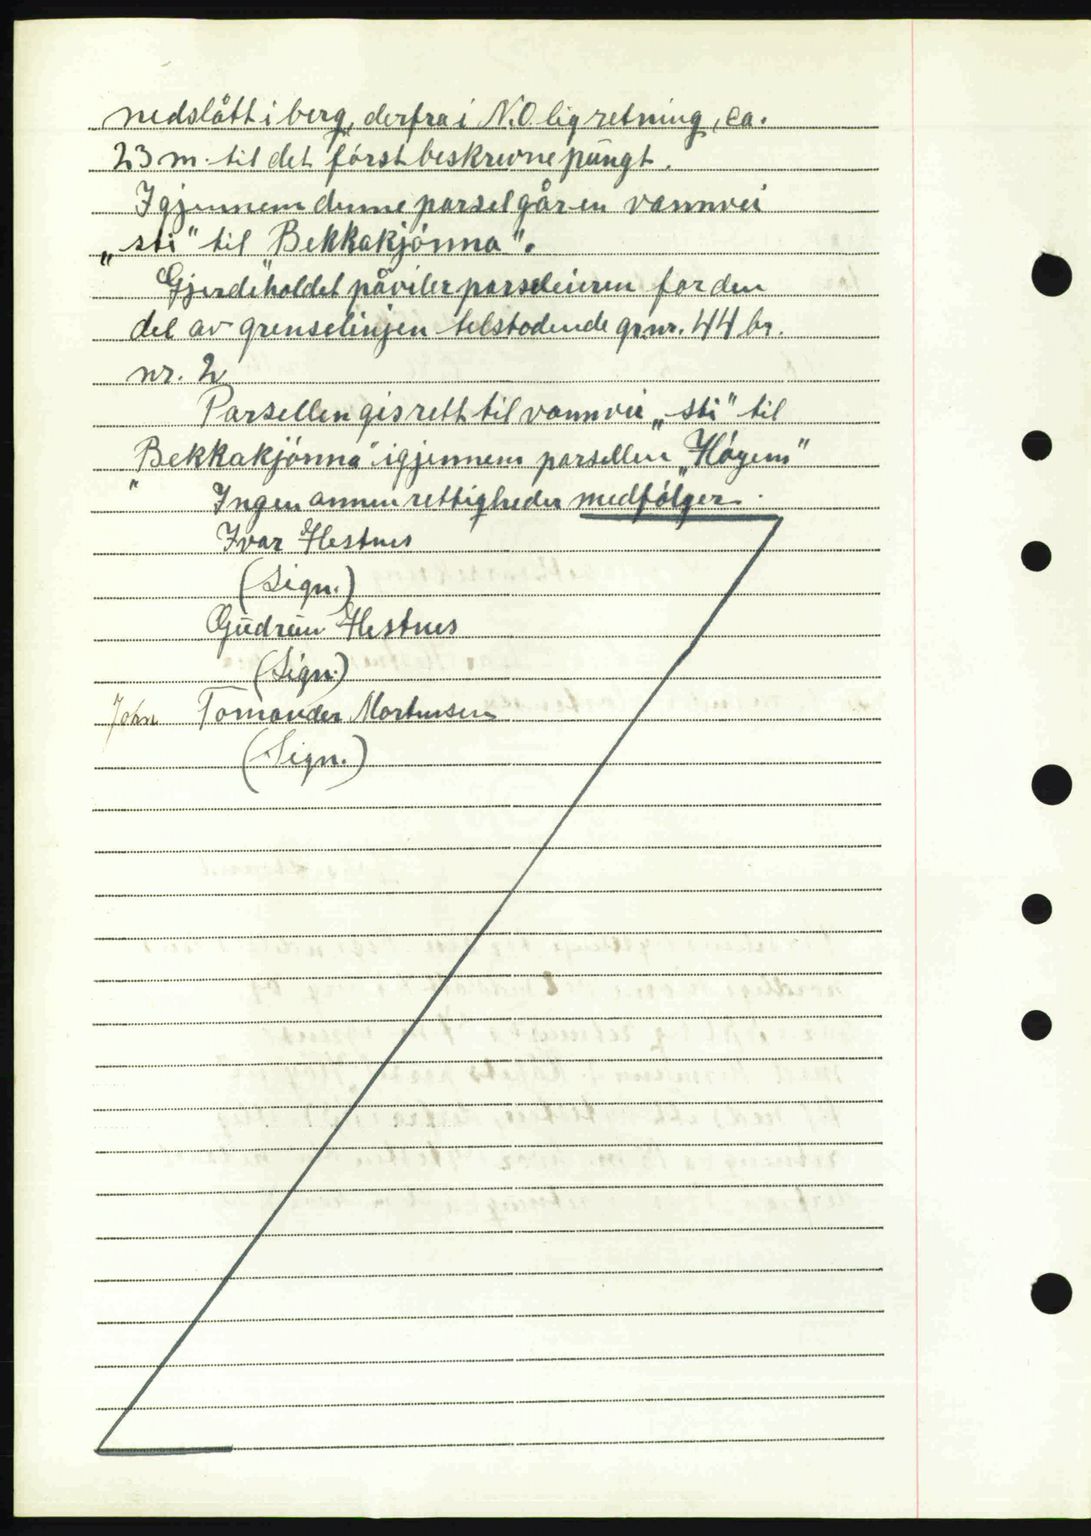 nedslått i berg, derfra i N.O. lig retning, ca.
23 m. til det först beskrevne pungt.
Igjennem denne parsel går en vannvei
„sti" til „Bekkakjönna".
Gjerdeholdet påviler parseleieren for den
del av grenselinjen tilstodende gr.nr. 44 br.
nr. 2
Parsellen gis rett til vannvei „sti" til
„Bekkakjönna" igjennem parsellen „Högem"
Ingen annen rettigheder medfölger.
Ivar Hestnes
(Sign.)
Gudrun Hestnes
(Sign.)
John Tomander Mortensen
(Sign.)